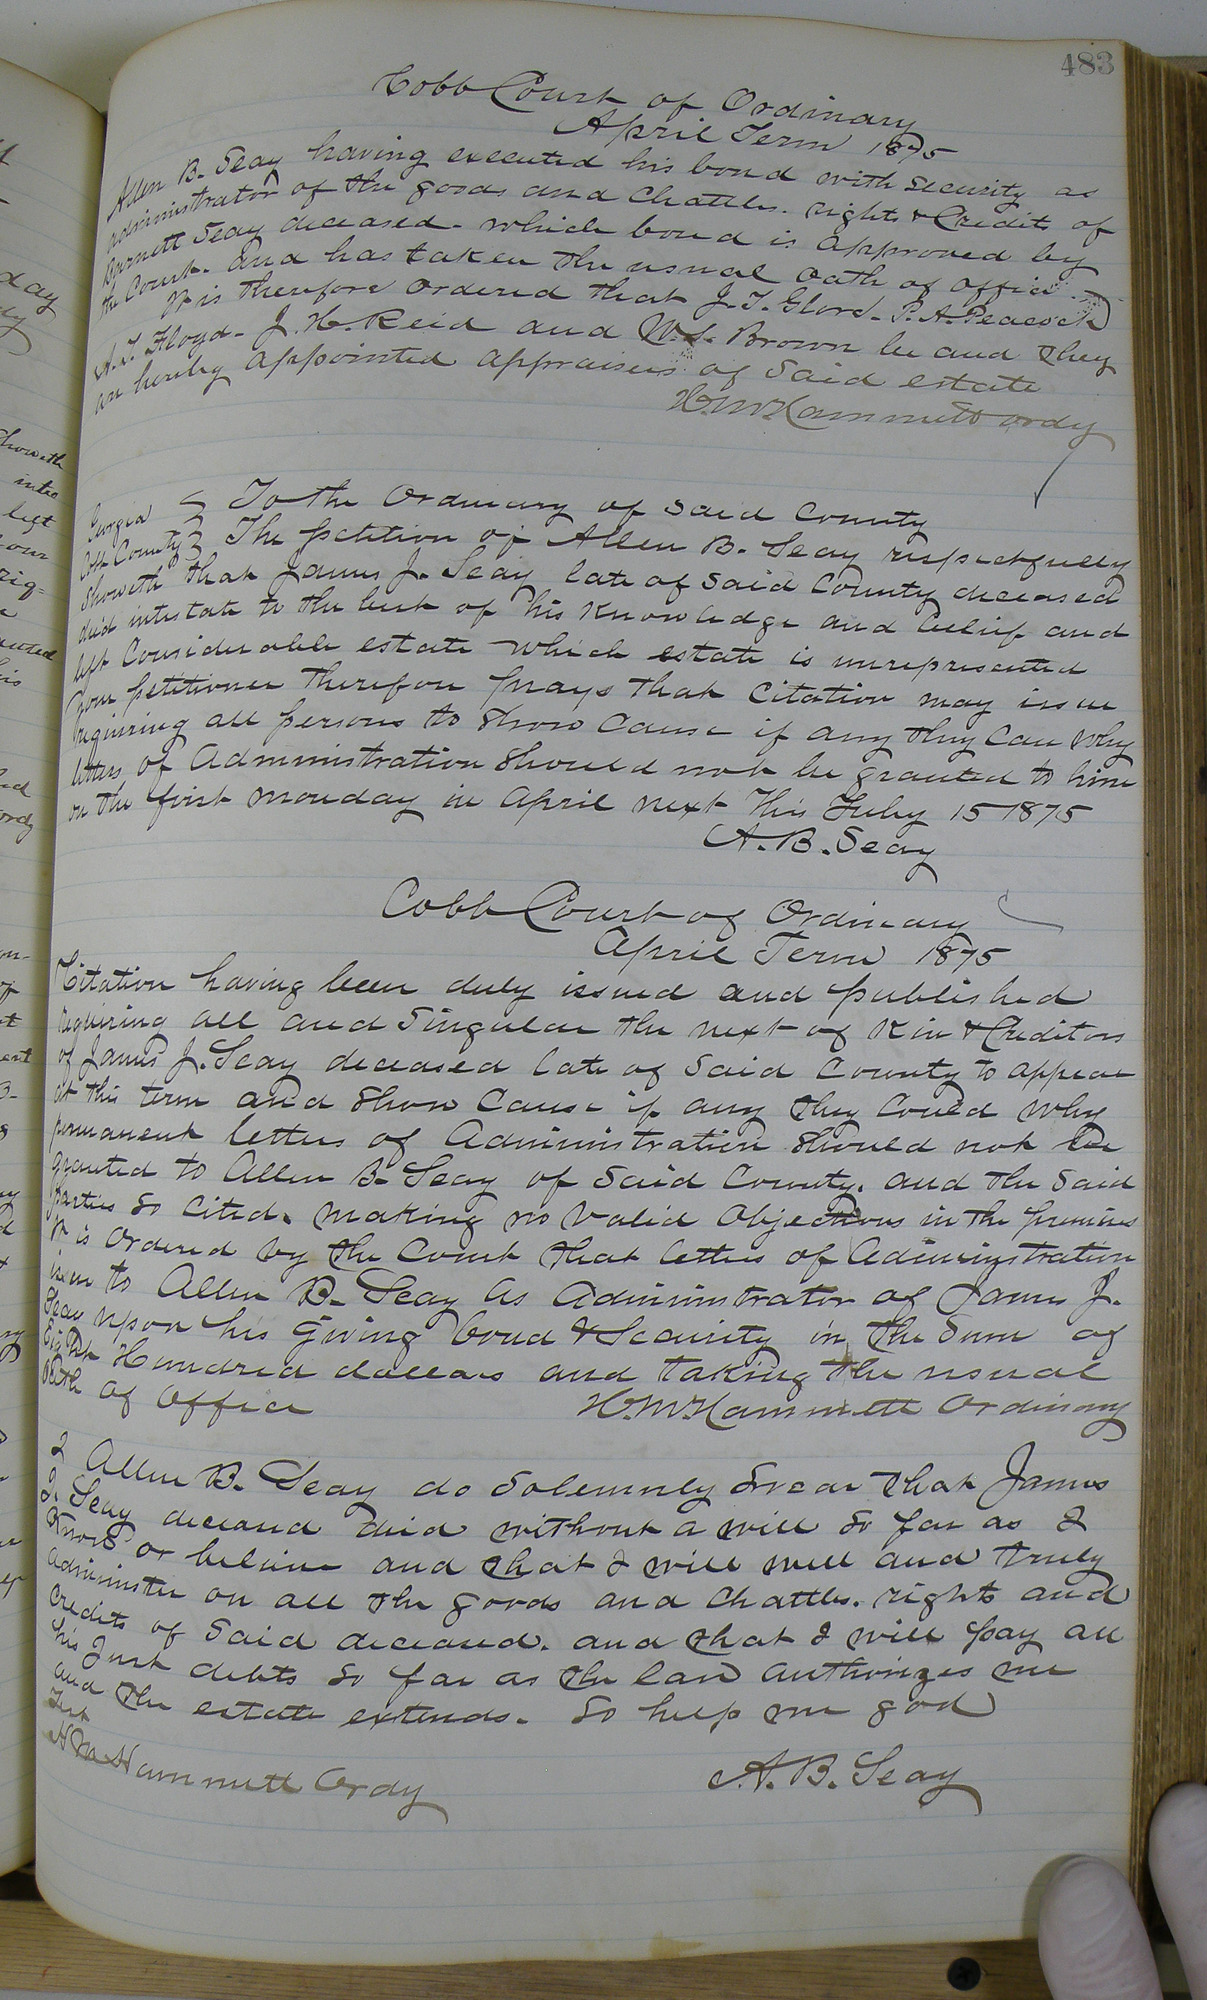 483
Cobb Court of Ordinary
April Term 1875
Allen B. Seay having executed his bond with security as
administrator of the goods and chattles. rights & Credits of
Barnett Seay deceased. which bond is approved by
the Court. and has taken the usual oath of office
It is therefore ordered that J. T. Glore. P. A. Peacock
A. J. Floyd. J. H. Reid and W. S. Brown be and they
are hereby appointed appraisers of said estate
H. M. Hammett ordy
Georgia } To the Ordinary of said County
Cobb County } The petition of Allen B. Seay respectfully
showeth that James J. Seay late of said County deceased
died intestate to the best of his knowledge and belief and
left Considerable estate which estate is unrepresented
your petitioner therefore prays that Citation may issue
requiring all persons to show Cause if any they Can why
letters of Administration should not be granted to him
on the first monday in April next This Feby 15 1875
A. B. Seay
Cobb Court of Ordinary
April Term 1875
Citation having been duly issued and published
requiring all and singular the next of Kin & Creditors
of James J. Seay deceased late of said County to appear
at this term and show Cause if any they Could why
permanent letters of Administration should not be
granted to Allen B. Seay of said County. and the said
parties so Cited. making no valid objections in the premises
It is ordered by the Court that letters of administration
issue to Allen B. Seay as administrator of James J.
Seay upon his giving bond & Security in the sum of
Eight Hundred dollars and taking the usual
oath of office
H. M. Hammett Ordinary
I Allen B. Seay do solemnly swear that James
J. Seay deceased died without a will so far as I
Know or believe and that I will well and truly
administer on all the goods and chattles. rights and
Credits of said deceased. and that I will pay all
his Just debts so far as the law authorizes me
and the estate extends. So help me god
Test
H M Hammett Ordy
A. B. Seay